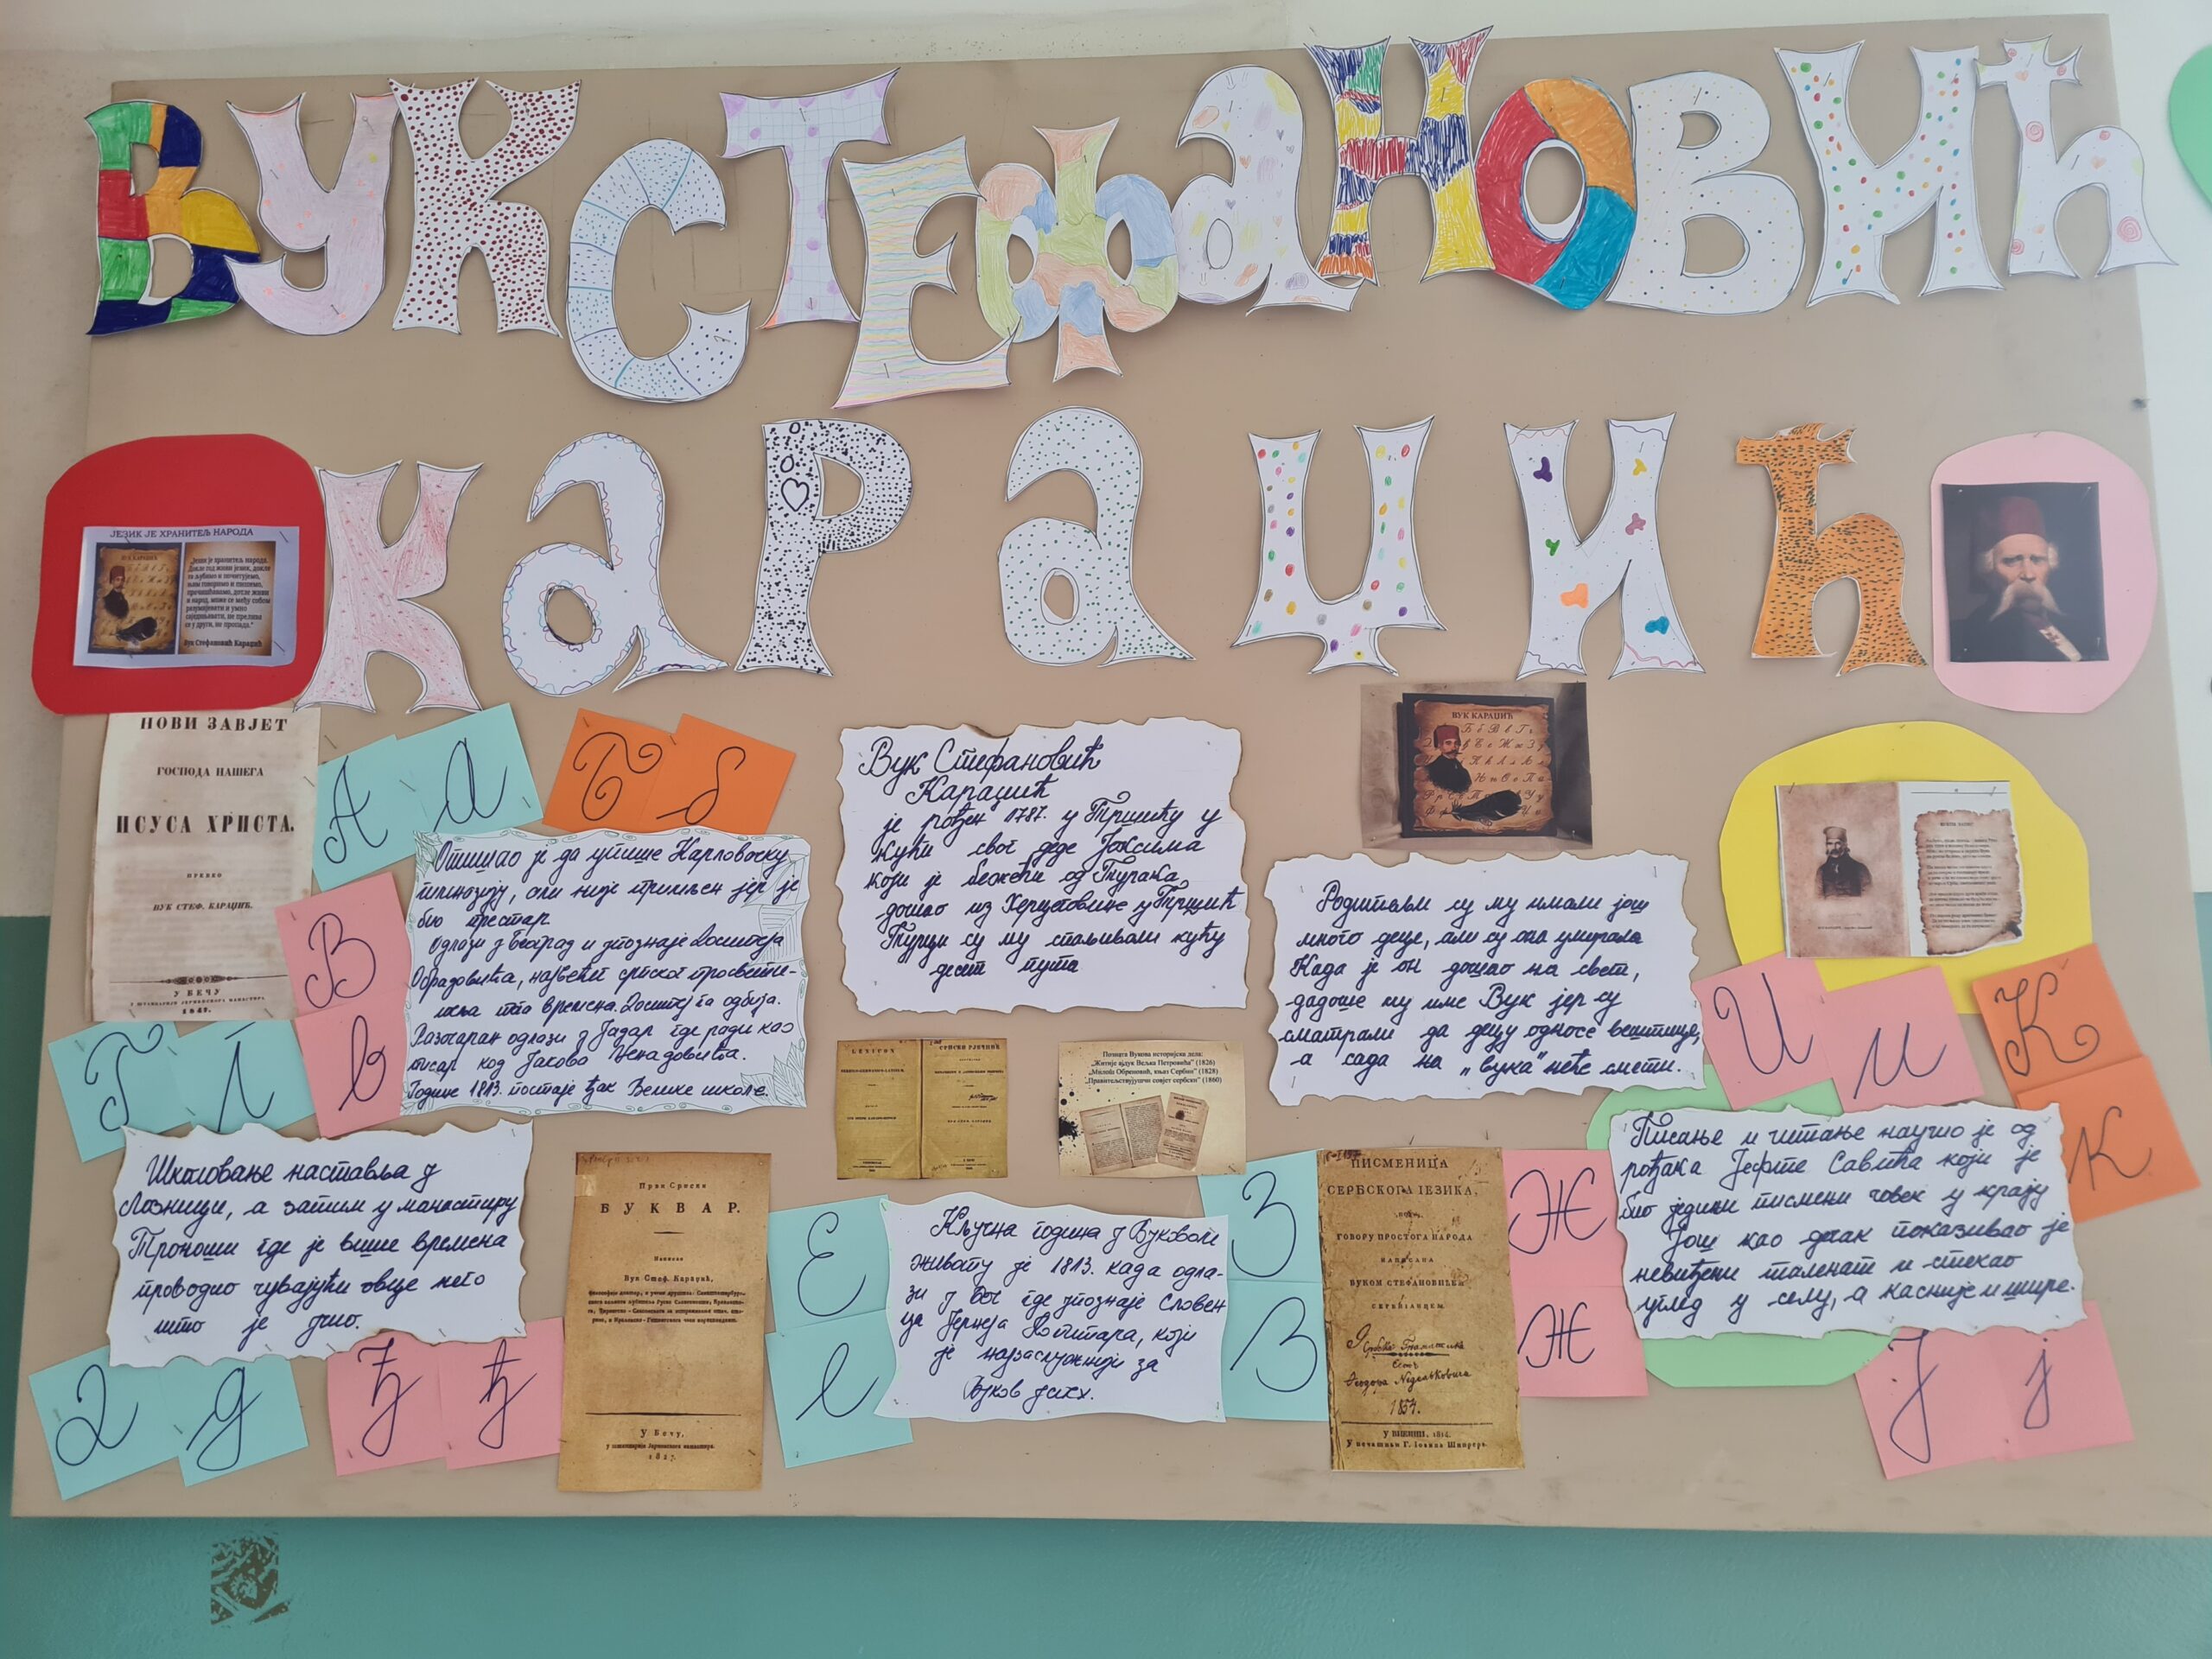 ВУК СТЕФАНОВИЋ
КАРАЏИЋ
ЈЕЗИК ЈЕ ХРАНИТЕЉ НАРОДА
Вук Стефановић Караџић
НОВИ ЗАВЈЕТ
ГОСПОДА НАШЕГА
ИСУСА ХРИСТА.
ПРЕВЕО
ВУК СТЕФ. КАРАЏИЋ.
У БЕЧУ
А а
Б б
В
в
Г г
Отишао је да упише Карловачку
гимназију, али није примљен јер је
био престар
Одлази у Београд и упознаје Доситеја
Обрадовића, највећег српског просвети-
теља тога времена. Доситеј га одбија.
Разочаран одлази у Јадар где ради као
писар код Јакова Ненадовића.
Године 1813. постаје ђак Велике школе.
Вук Стефановић
Караџић
је рођен 1787. у Тршићу у
кући свог деде Јоксима
који је бежећи од Турака
дошао из Херцеговине у Тршић
Турци су му спаљивали кућу
десет пута
ВУК КАРАЏИЋ
Родитељи су му имали још
много деце, али су она умирала
Када је он дошао на свет,
дадоше му име Вук јер су
сматрали да децу односе вештице,
а сада на „вука" неће смети.
И и
К
к
Школовање наставља у
Лозници, а затим у манастиру
Троноши где је више времена
проводио чувајући овце него
што је учио.
Д д
Ђ ђ
Први Српски
БУКВАР.
Написао
Вук Стеф. Караџић,
У Бечу,
у штампарији Јерменскога манастира.
1827.
СРПСКИ РЈЕЧНИК
Позната Вукова историјска дела:
„Житије ајдук Вељка Петровића" (1826)
„Милош Обреновић, књаз Сербии" (1828)
„Правитељствујушчи совјет сербски" (1860)
Е
е
Кључна година у Вуковом
животу је 1813. када одла-
зи у Беч где упознаје Словен
ца Јернеја Копитара, који
је најзаслужнији за
Вуков успех.
З
з
ПИСМЕНИЦА
СЕРБСКОГА ІЕЗИКА,
ГОВОРУ ПРОСТОГА НАРОДА
НАПИСАНА
ВУКОМ СТЕФАНОВИЋЕМ
СЕРБІАНЦЕМ
У ВІЕННИ, 1814.
У печатньи Г. Іоанна Шнирера.
Ж
ж
Писање и читање научио је од
рођака Јефте Савића који је
био једини писмени човек у крају
Још као дечак показивао је
невиђени таленат и стекао
углед у селу, а касније и шире.
Ј ј